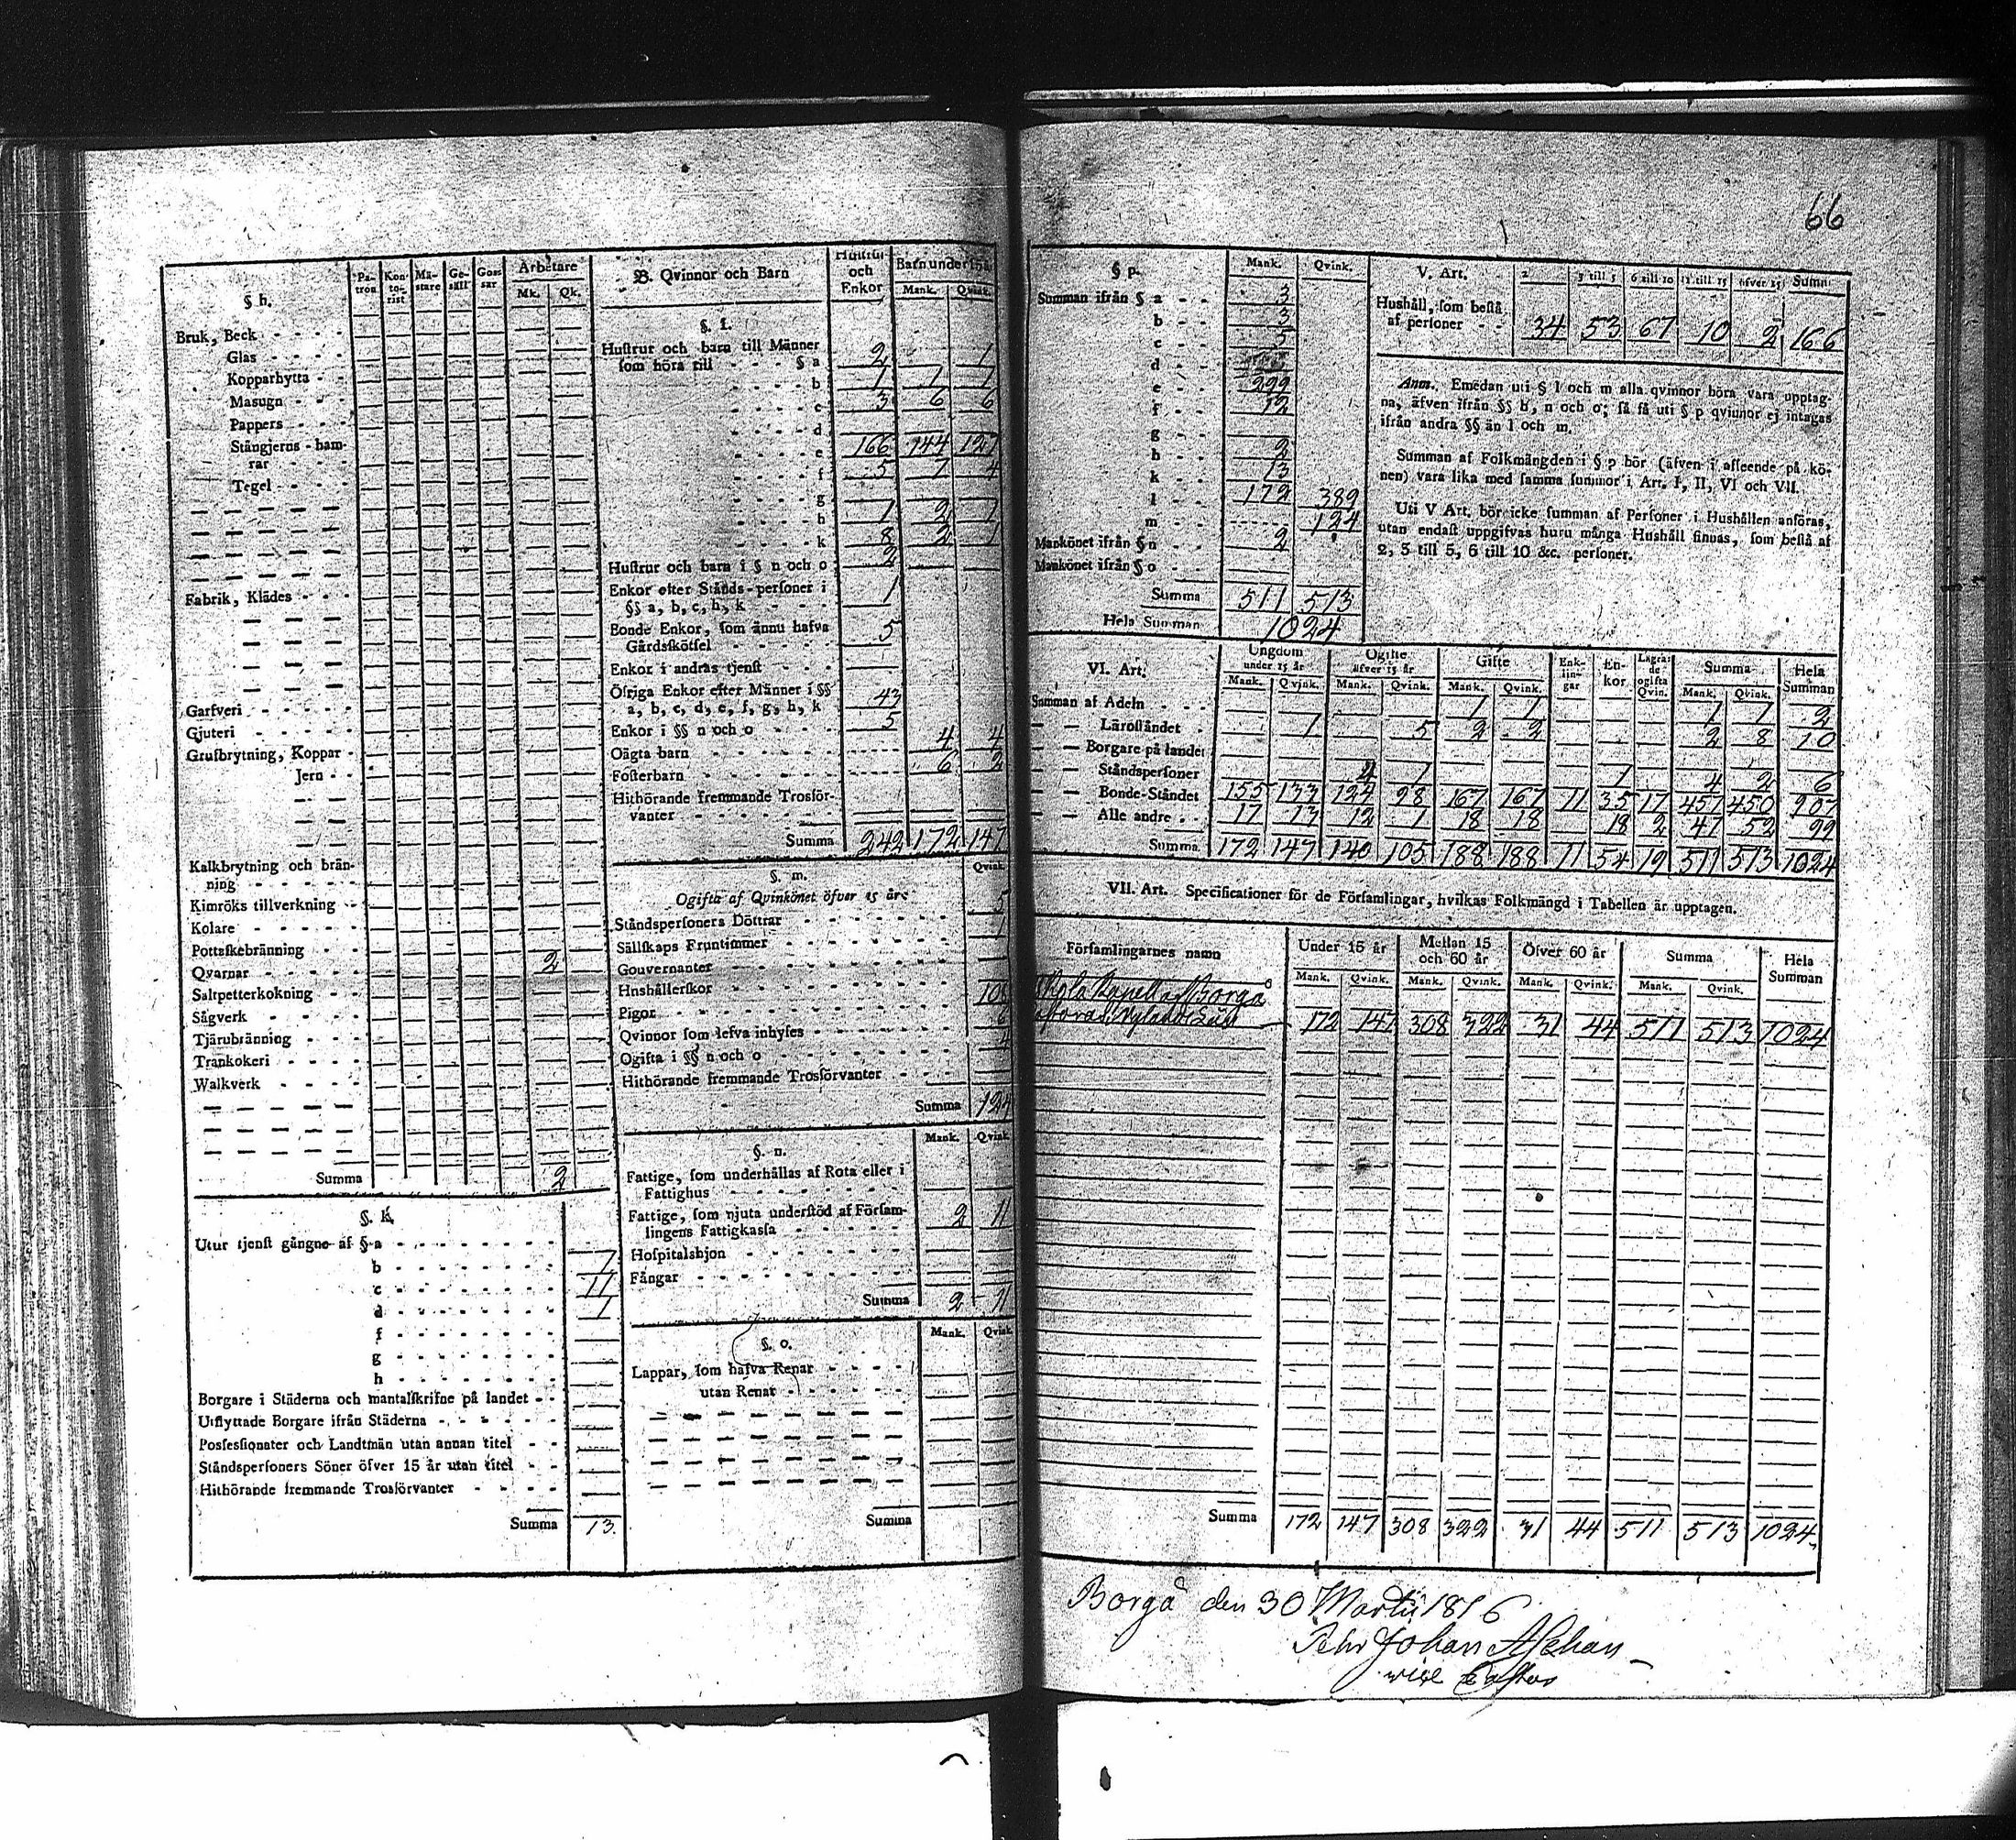 66
§ h.
Pa-tron Kon-to-rist Mä-stare Ge-säll Gos-sar Arbetare Mk. Qk.
Bruk, Beck
Glas
Kopparhytta
Masugn
Pappers
Stångjerns-ham-
rar
Tegel
Fabrik, Klädes
Garfveri
Gjuteri
Grufbrytning, Koppar
Jern
Kalkbrytning och brän-
ning
Kimröks tillverkning
Kolare
Pottaskebränning
Qvarnar 2
Saltpetterkokning
Sågverk
Tjärubränning
Trankokeri
Walkverk
Summa 2
§. k.
Utur tjenst gångne af § a
b 1
c 11
d 1
f
g
h
Borgare i Städerna och mantalskrifne på landet
Utflyttade Borgare ifrån Städerna
Possessionater och Landtmän utan annan titel
Ståndspersoners Söner öfver 15 år utan titel
Hithörande fremmande Trosförvanter
Summa 13.
B. Qvinnor och Barn Hustrur och Enkor Barn under Mank. Qvink.
§. l.
Hustrur och barn till Männer
som höra till § a 2 1
b 1 1 1
c 3 6 6
d
e 166 144 127
f 5 7 4
g
h 1 2 1
k 8 2 1
Hustrur och barn i § n och o 2
Enkor efter Stånds-personer i
§§ a, b, c, h, k 1
Bonde Enkor, som ännu hafva
Gårdsskötsel 5
Enkor i andras tjenst
Öfriga Enkor efter Männer i §§
a, b, c, d, e, f, g, h, k 43
Enkor i §§ n och o 5
Oägta barn 4 4
Fosterbarn 6 2
Hithörande fremmande Trosför-
vanter
Summa 242 172 147
§. m. Qvink.
Ogifta af Qvinkönet öfver 15 år
Ståndspersoners Döttrar 5
Sällskaps Fruntimmer 1
Gouvernanter
Hushållerskor
Pigor 108
Qvinnor som lefva inhyses 6
Ogifta i §§ n och o 4
Hithörande fremmande Trosförvanter
Summa 124
§. n. Mank. Qvink.
Fattige, som underhållas af Rota eller i
Fattighus
Fattige, som njuta understöd af Försam-
lingens Fattigkassa 2 11
Hospitalshjon
Fångar
Summa 2 11
§. o. Mank. Qvink.
Lappar, som hafva Renar
utan Renar
Summa
§ p. Mank. Qvink.
Summan ifrån § a 3
b 3
c 5
d
e 299
f 12
g
h 2
k 13
l 172 389
m 124
Mankönet ifrån § n 2
Mankönet ifrån § o
Summa 511 513
Hela Summan 1024
V. Art. 2 3 till 5 6 till 10 11 till 15 öfver 15 Summa
Hushåll, som bestå
af personer 34 53 67 10 2 166
Anm. Emedan uti § l och m alla qvinnor böra vara upptag-
na, äfven ifrån §§ h, n och o; så få uti § p qvinnor ej intagas
ifrån andra §§ än l och m.
Summan af Folkmängden i § p bör (äfven i afseende på kö-
nen) vara lika med samma summor i Art. I, II, VI och VII.
Uti V Art. bör icke summan af Personer i Hushållen anföras,
utan endast uppgifvas huru många Hushåll finnas, som bestå af
2, 3 till 5, 6 till 10 &c. personer.
VI. Art. Ungdom under 15 år Ogifte öfver 15 år Gifte Enk-lin-gar En-kor Lägra-de ogifta Qvin. Summa Hela Summan
Mank. Qvink. Mank. Qvink. Mank. Qvink. Mank. Qvink.
Summan af Adeln 1 1 1 1 2
Läroståndet 1 5 2 2 2 8 10
Borgare på landet
Ståndspersoner 4 1 1 4 2 6
Bonde-Ståndet 155 133 124 98 167 167 11 35 17 457 450 907
Alle andre 17 13 12 1 18 18 18 2 47 52 99
Summa 172 147 140 105 188 188 11 54 19 511 513 1024
VII. Art. Specificationer för de Församlingar, hvilkas Folkmängd i Tabellen är upptagen.
Församlingarnes namn Under 15 år Mellan 15 och 60 år Öfver 60 år Summa Hela Summan
Mank. Qvink. Mank. Qvink. Mank. Qvink. Mank. Qvink.
Kapell af Borgå
172 147 308 322 31 44 511 513 1024
Summa 172 147 308 322 31 44 511 513 1024
Borgå den 30 Martii 1816
Pehr Johan Alphan
vice Pastor